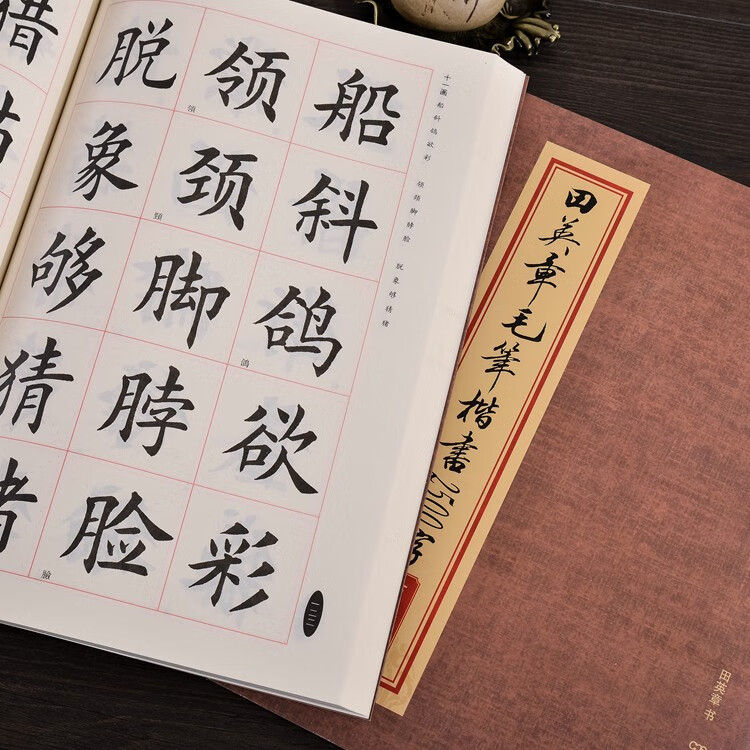 十一画 船斜鸽欲彩 领颈脚脖脸 脱象够猜猪
船斜鸽欲彩
鴿
领颈脚脖脸
領
頸
臉
脱象够猜猪
一二二
田英章毛筆楷書2500字
田英章 书